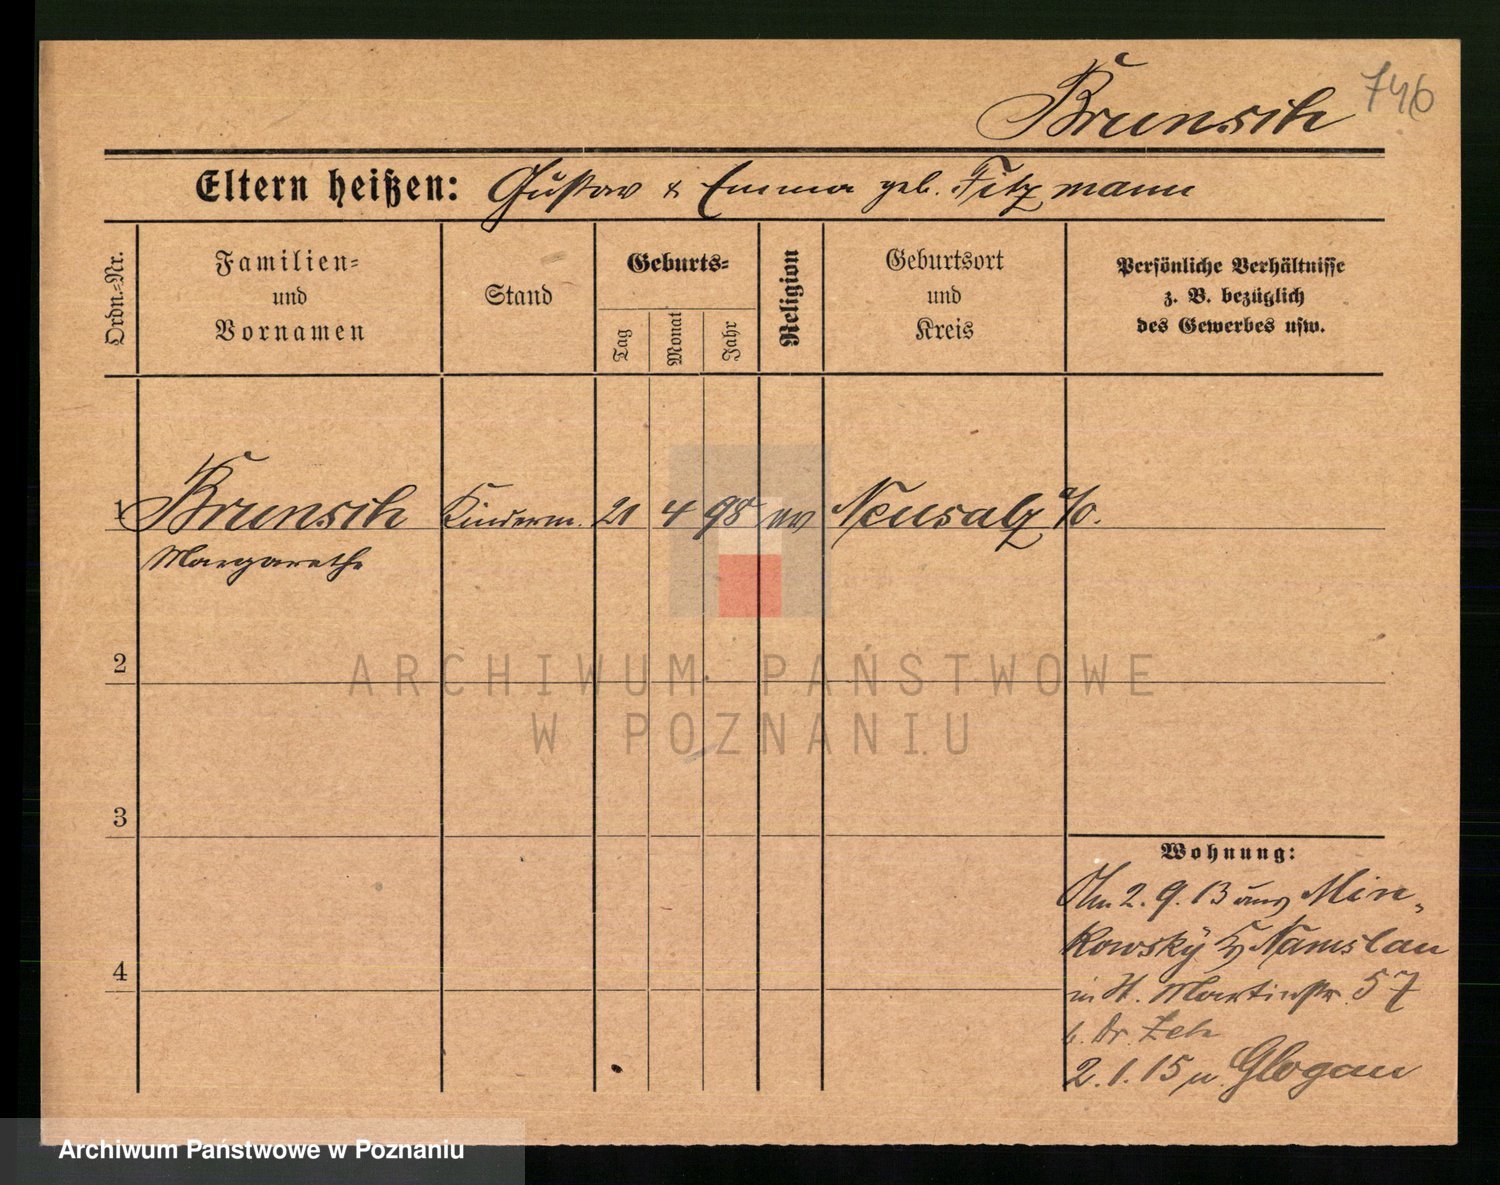 Brunsch 746
Eltern heißen: Gustav & Emma geb. Fitzmann
Ordn.-Nr.
Familien-
und
Vornamen
Stand
Geburts-
Tag
Monat
Jahr
Religion
Geburtsort
und
Kreis
Persönliche Verhältnisse
z. B. bezüglich
des Gewerbes usw.
1 Brunsch Kinderm. 21 4 98 ev Neusalz a/O.
Margarethe
2
ARCHIWUM PAŃSTWOWE
W POZNANIU
3
Wohnung:
Am 2. 9. 13 aus Min-
kowsky Namslau
in H. Martinstr. 57
b. Dr.
4
2. 1. 15 n. Glogau
Archiwum Państwowe w Poznaniu